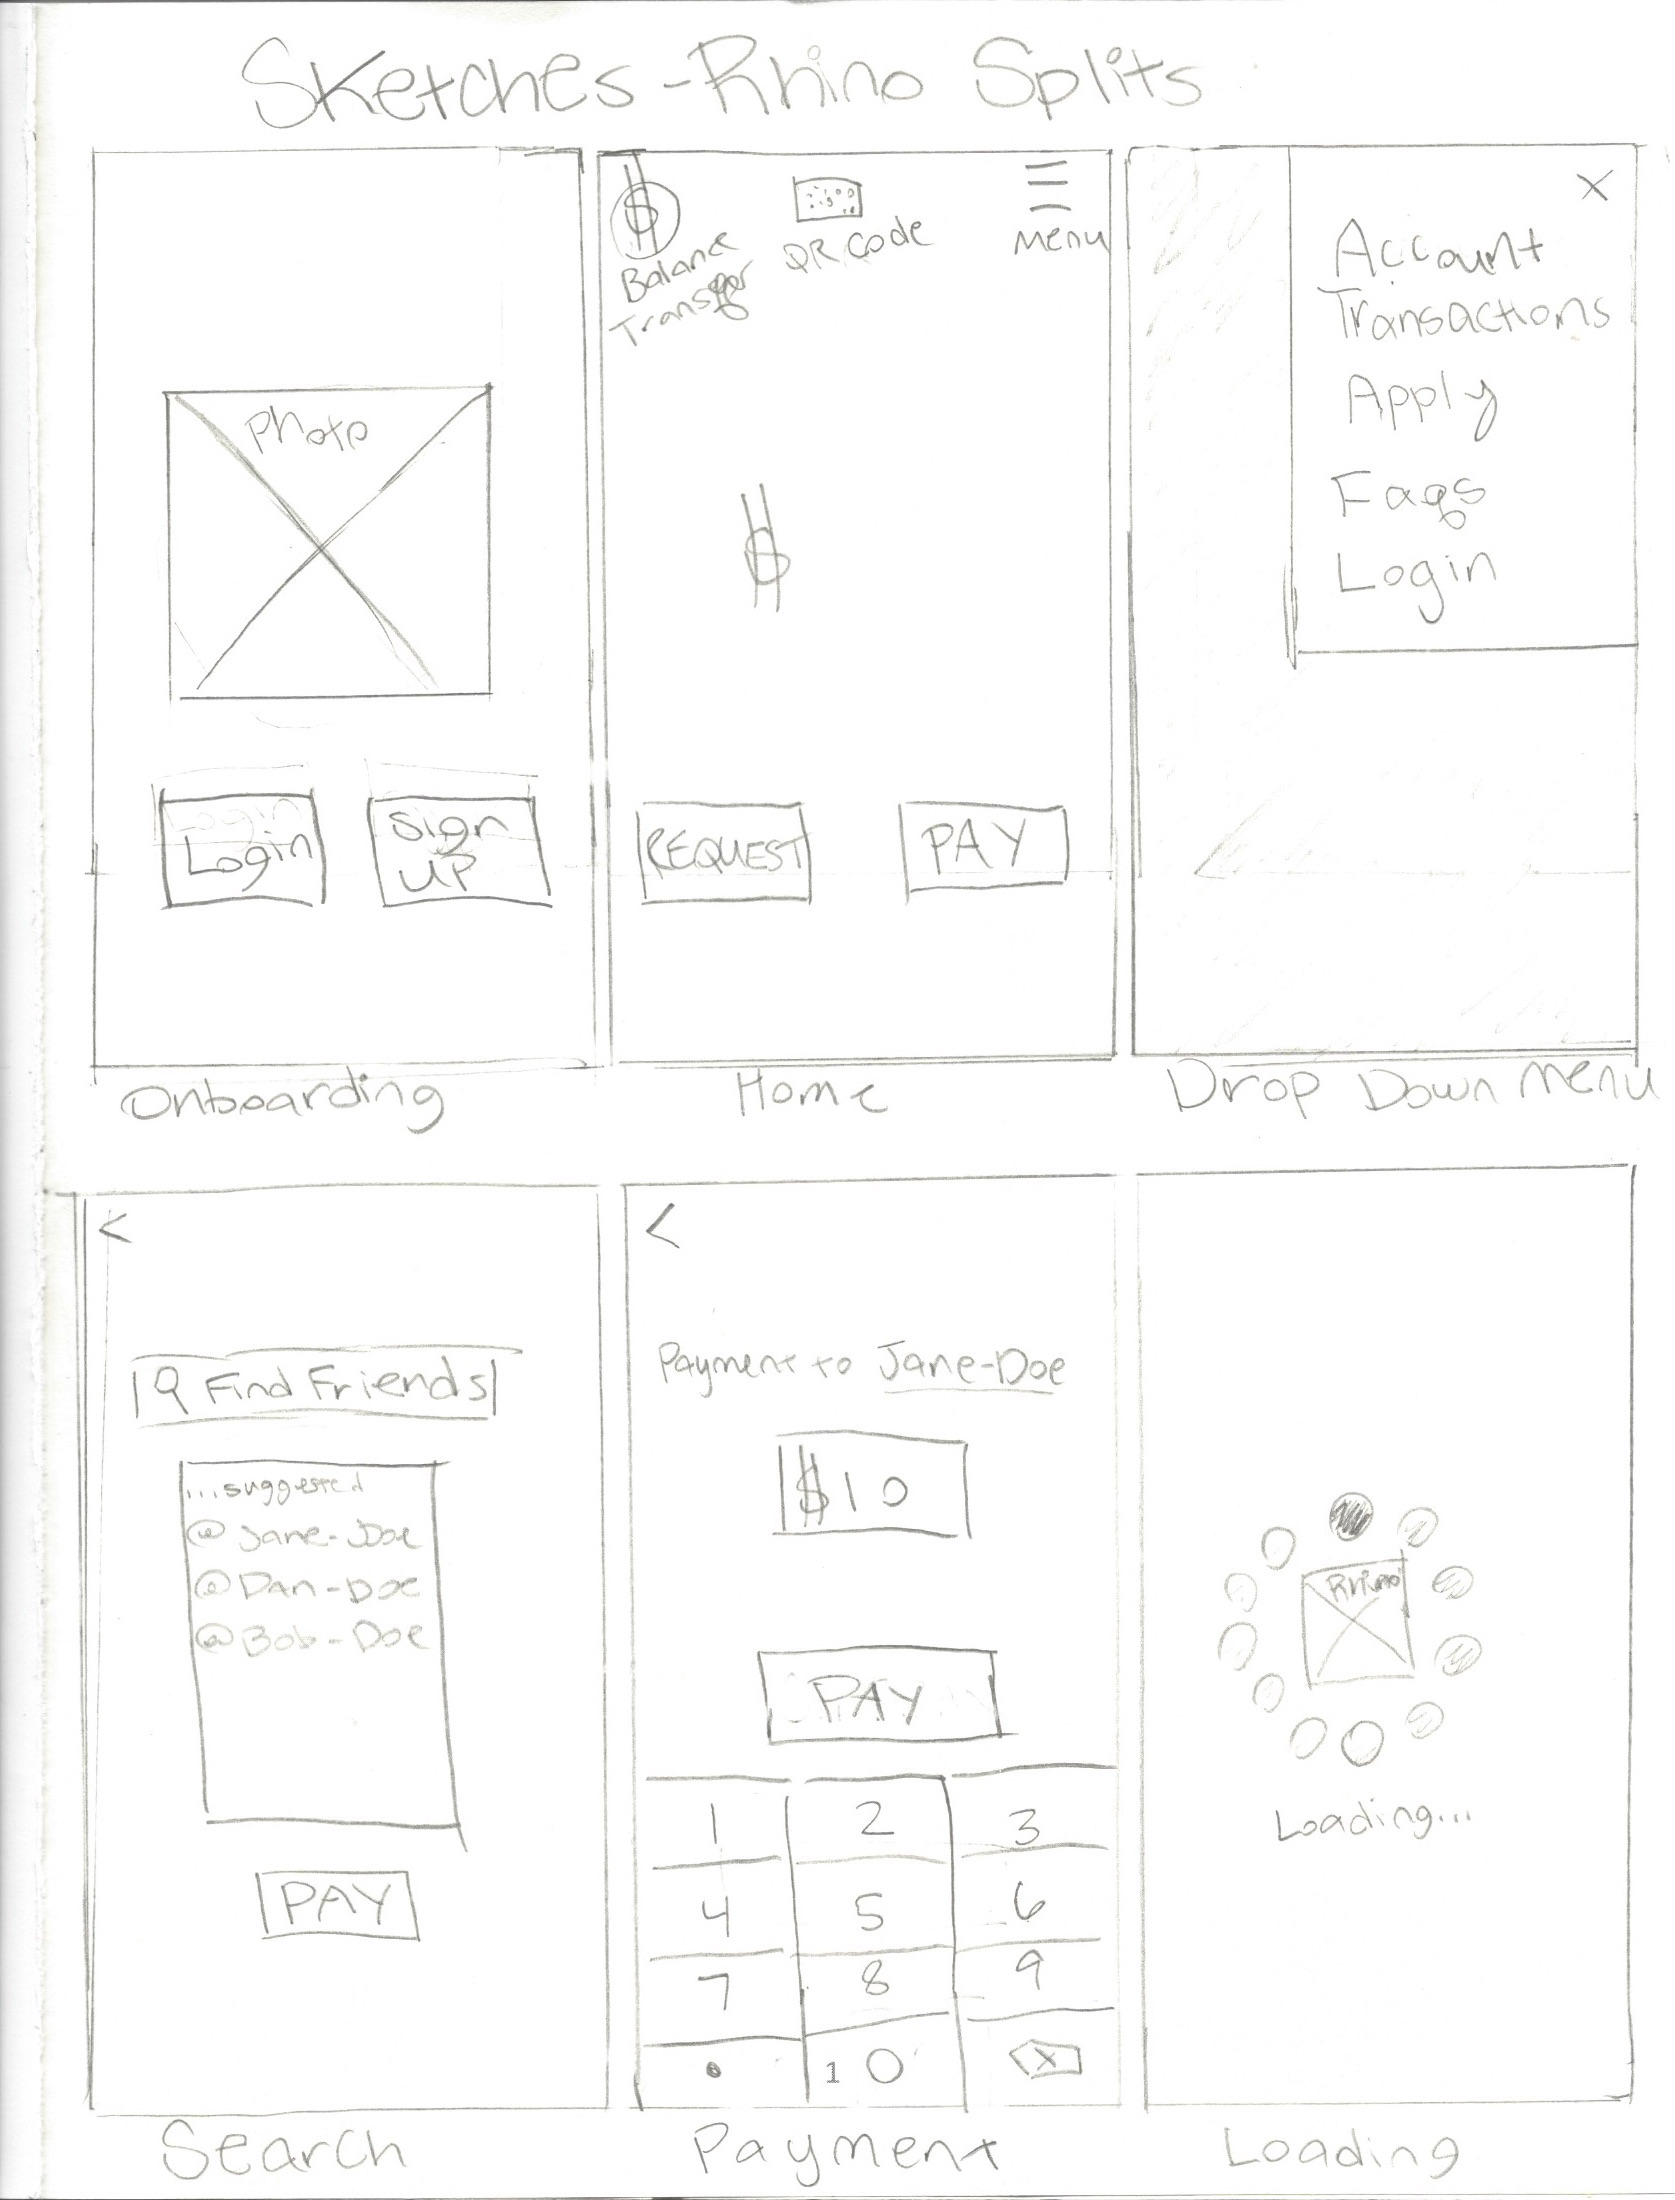 Sketches - Rhino Splits
Photo
Login
Sign
UP
Onboarding
$
Balance
Transfer
QR Code
Menu
$
REQUEST
PAY
Home
X
Account
Transactions
Apply
Faqs
Login
Drop Down Menu
<
Find Friends
...suggested
@Jane-Doe
@Dan-Doe
@Bob-Doe
PAY
Search
<
Payment to Jane-Doe
$10
PAY
1 2 3
4 5 6
7 8 9
. 1 0 X
Payment
Rhino
Loading...
Loading